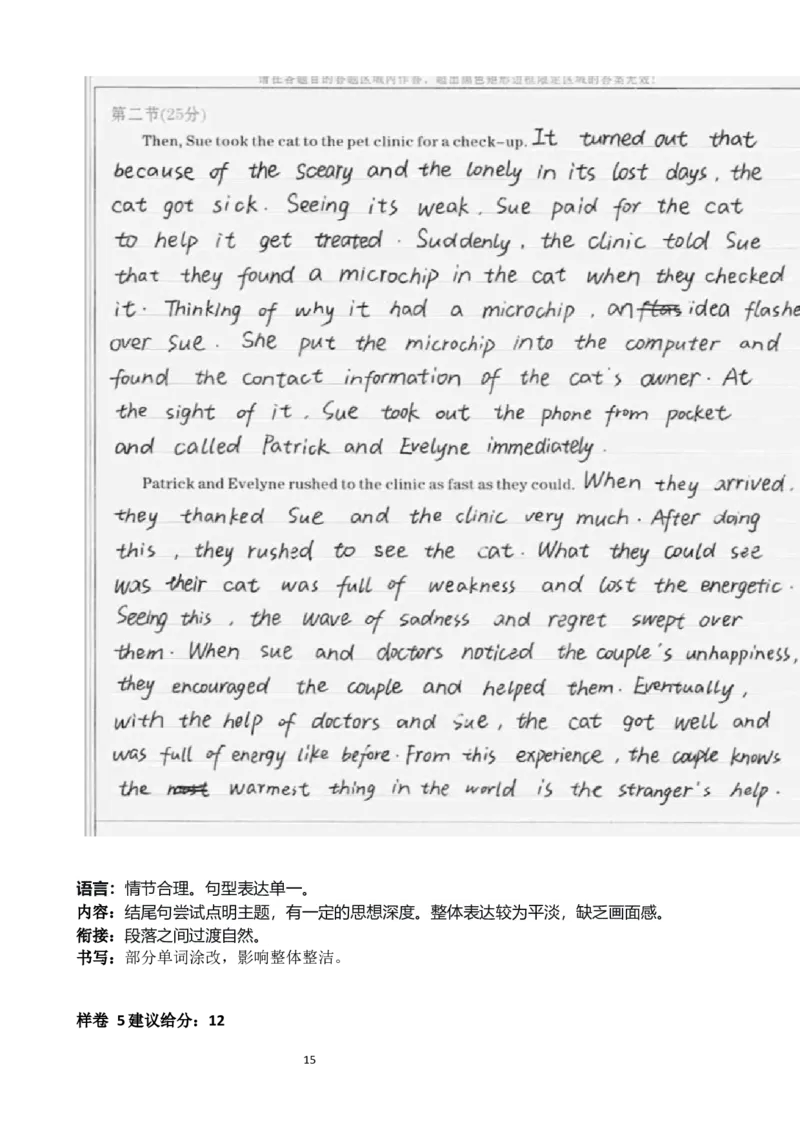 请在各题目的答题区域内作答，超出黑色矩形边框限定区域的答案无效！
第二节(25分)
Then, Sue took the cat to the pet clinic for a check-up. It turned out that
because of the sceary and the lonely in its lost days, the
cat got sick. Seeing its weak, Sue paid for the cat
to help it get treated. Suddenly, the clinic told Sue
that they found a microchip in the cat when they checked
it. Thinking of why it had a microchip, an idea flashe
over Sue. She put the microchip into the computer and
found the contact information of the cat's owner. At
the sight of it, Sue took out the phone from pocket
and called Patrick and Evelyne immediately.
Patrick and Evelyne rushed to the clinic as fast as they could. When they arrived,
they thanked Sue and the clinic very much. After doing
this, they rushed to see the cat. What they could see
was their cat was full of weakness and lost the energetic.
Seeing this, the wave of sadness and regret swept over
them. When sue and doctors noticed the couple's unhappiness,
they encouraged the couple and helped them. Eventually,
with the help of doctors and Sue, the cat got well and
was full of energy like before. From this experience, the couple knows
the warmest thing in the world is the stranger's help.
语言：情节合理。句型表达单一。
内容：结尾句尝试点明主题，有一定的思想深度。整体表达较为平淡，缺乏画面感。
衔接：段落之间过渡自然。
书写：部分单词涂改，影响整体整洁。
样卷 5建议给分：12
15